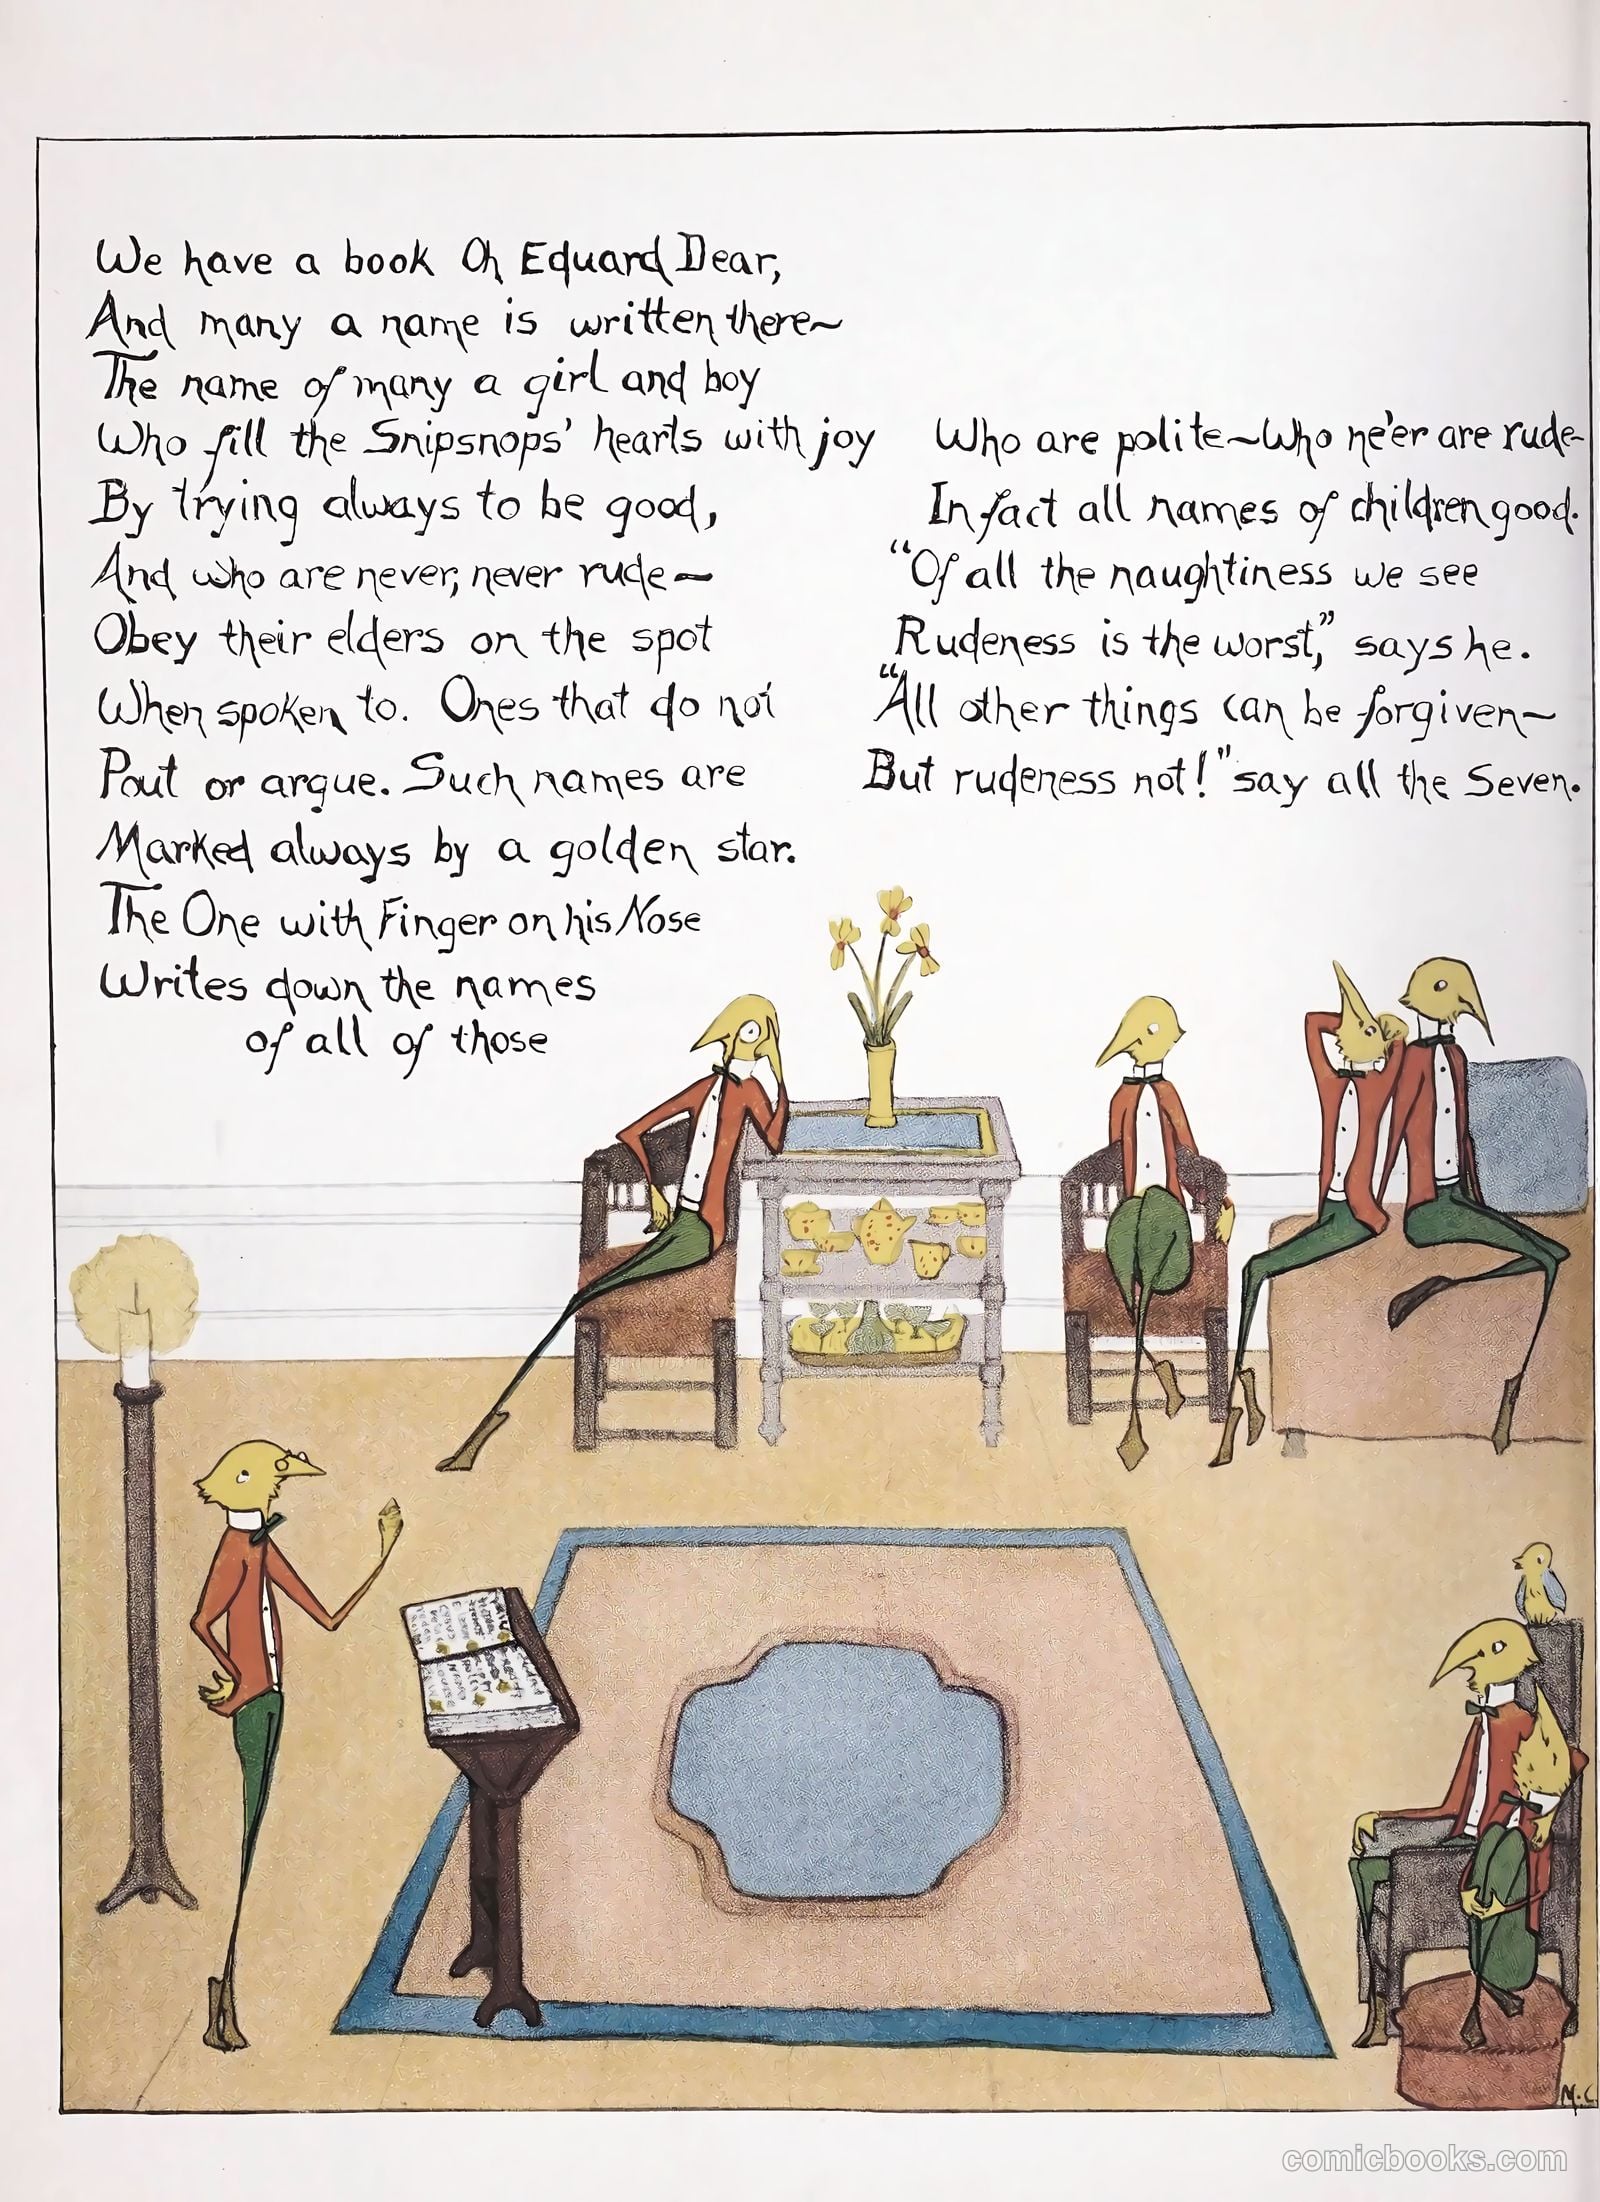 We have a book Oh Eduard Dear,
And many a name is written there~
The name of many a girl and boy
Who fill the Snipsnops' hearts with joy
By trying always to be good,
And who are never, never rude~
Obey their elders on the spot
When spoken to. Ones that do not
Pout or argue. Such names are
Marked always by a golden star.
The One with Finger on his Nose
Writes down the names
of all of those
Who are polite~Who ne'er are rude-
In fact all names of children good.
"Of all the naughtiness we see
Rudeness is the worst," says he.
"All other things can be forgiven~
But rudeness not!" say all the Seven.
M.C.
comicbooks.com